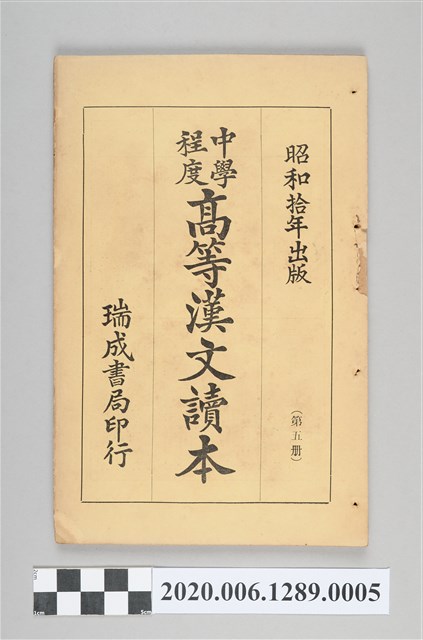 昭和拾年出版
（第五册）
中學程度
高等漢文讀本
瑞成書局印行
0cm
5cm
2020.006.1289.0005